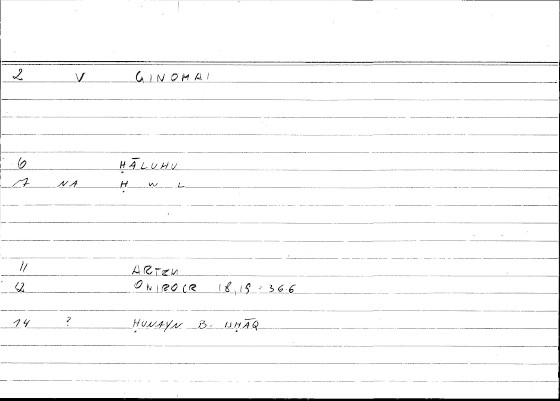 2 V GINOMAI
6 ḤĀLUHU
7 NA Ḥ W L
11 ARTEM
12 ONIROCR 18,19 - 366
14 ? ḤUNAYN B. ISḤĀQ